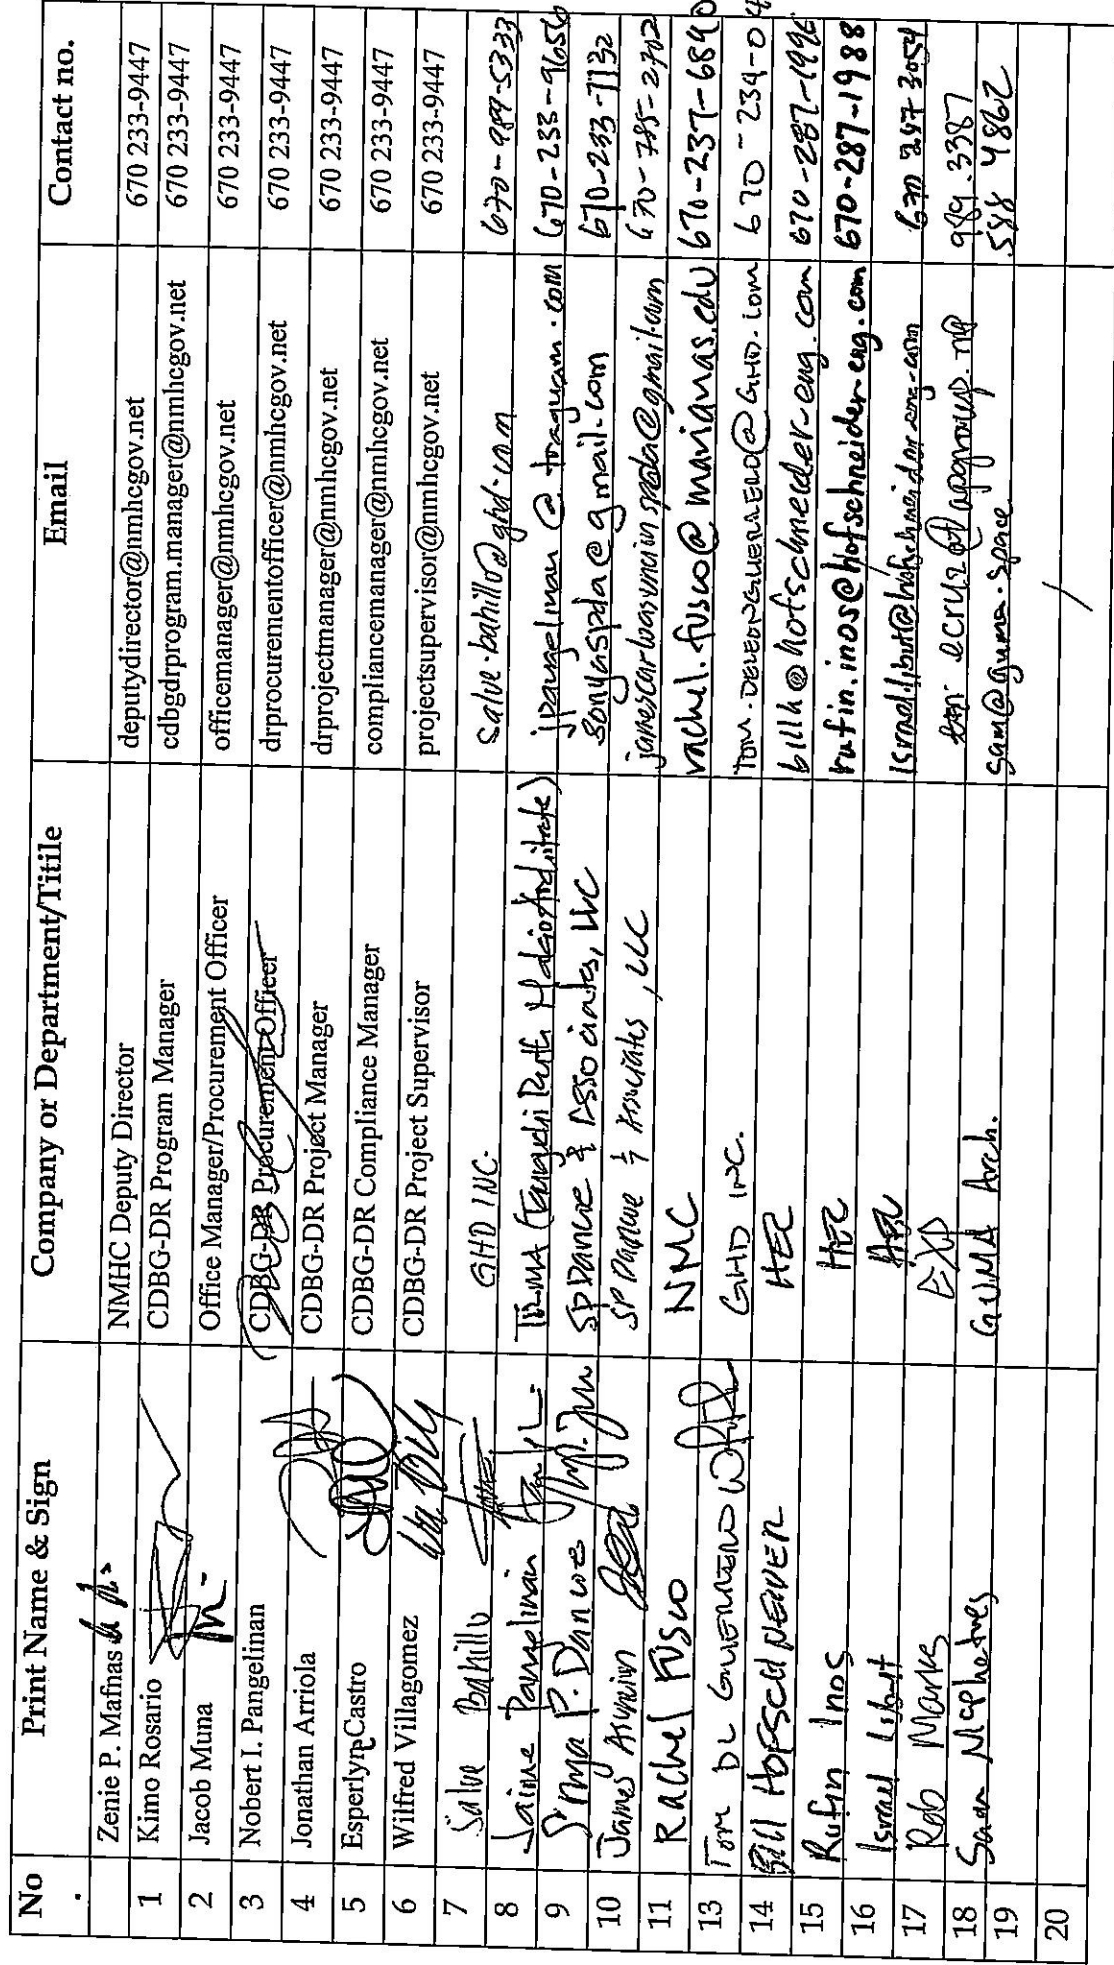 No. Print Name & Sign Company or Department/Titile Email Contact no.
Zenie P. Mafnas NMHC Deputy Director deputydirector@nmhcgov.net 670 233-9447
1 Kimo Rosario CDBG-DR Program Manager cdbgdrprogram.manager@nmhcgov.net 670 233-9447
2 Jacob Muna Office Manager/Procurement Officer officemanager@nmhcgov.net 670 233-9447
3 Nobert I. Pangelinan CDBG-DR Procurement Officer drprocurementofficer@nmhcgov.net 670 233-9447
4 Jonathan Arriola CDBG-DR Project Manager drprojectmanager@nmhcgov.net 670 233-9447
5 Esperlyn Castro CDBG-DR Compliance Manager compliancemanager@nmhcgov.net 670 233-9447
6 Wilfred Villagomez CDBG-DR Project Supervisor projectsupervisor@nmhcgov.net 670 233-9447
7 Salve Bahillo GHD INC. salve.bahillo@ghd.com 670-989-5333
8 Jaime Pangelinan jpangelinan@traguam.com 670-233-9656
9 Sonya P. Dancoe SPDancoe & Associates, LLC sonyaspda@gmail.com 670-233-7132
10 James Asuncion SP Dancoe & Associates, LLC jamescarlosuncionspda@gmail.com 670-785-2702
11 Rachel Fusco NMC rachel.fusco@marianas.edu 670-237-6840
13 Tom DL Guerrero GHD INC. TOM.DELEONGUERRERO@GHD.com 670-234-04
14 Bill HOFSCHNEIDER HEC billh@hofschneider-eng.com 670-287-1996
15 Rufin Inos HEC rufin.inos@hofschneider-eng.com 670-287-1988
16 Israel Libut HEC israel.libut@hofschneider-eng.com 670 287 3054
17 Rob Marks ecruz@apgroup.mp 989.3387
18 Sam McPhetres GUMA Arch. sam@guma.space 588 4862
19
20